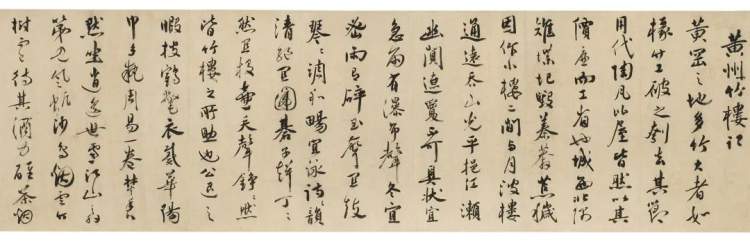 黃州竹樓記
黃罡之地多竹大者如
椽竹工破之刳去其節
用代陶瓦比屋皆然以其
價廉而工省也城西北隅
雉堞圮毀蓁莽蕪穢
因作小樓二間與月波樓
通遠吞山光平挹江瀨
幽闃遼夐不可具狀宜
急雨有瀑布聲冬宜
密雨有碎玉聲宜鼓
琴〻調和暢宜詠詩〻韻
清絕宜圍碁子聲丁〻
然宜投壺矢聲錚〻然
皆竹樓之所助也公退之
暇披鶴氅衣戴華陽
巾手執周易一卷焚香
默坐消遣世慮江山之外
第見風帆沙鳥烟雲竹
樹待其酒力醒茶烟